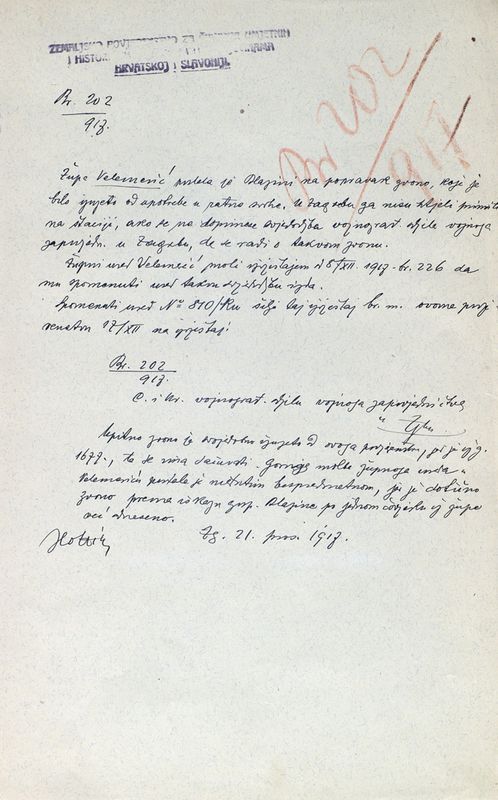 ZEMALJSKO POVJERENSTVO ZA UMJETNIH
I HISTOR
HRVATSKOJ I SLAVONIJI.
Br. 202
917.
Br 202
917
Župa Velemerić poslala je Blazini na popravak zvono, koje je
bilo izuzeto od upotrebe u ratne svrhe. U Zagrebu ga nisu htjeli primiti
na staciji, ako se ne doprinese svjedodžba vojnograđ. djela vojnoga
zapovjedn. u Zagrebu, da se radi o takvom zvonu.
Župni ured Velemerić moli izvještajem od 5/XII. 1917. br. 226 da
mu spomenuti ured takovu svjedodžbu izda.
Spomenuti ured No 810/Ku šalje taj izvještaj br. m. ovome povj.
venstvu 17/XII na izvještaj.
Br. 202
917.
C. i kr. vojnograđ. djelu vojnoga zapovjedničtva
Zgbu
Upitno zvono je svojedobno izuzeto od ovoga povjerenstva, jer je iz g.
1677., te se ima sačuvati. Gornja molba župnoga ureda u
Velemeriću postala je međutim bespredmetnom, jer je dotično
zvono prema iskazu gosp. Blazine po jednom čovjeku iz župe
već odneseno.
Zg. 21. pros. 1917.